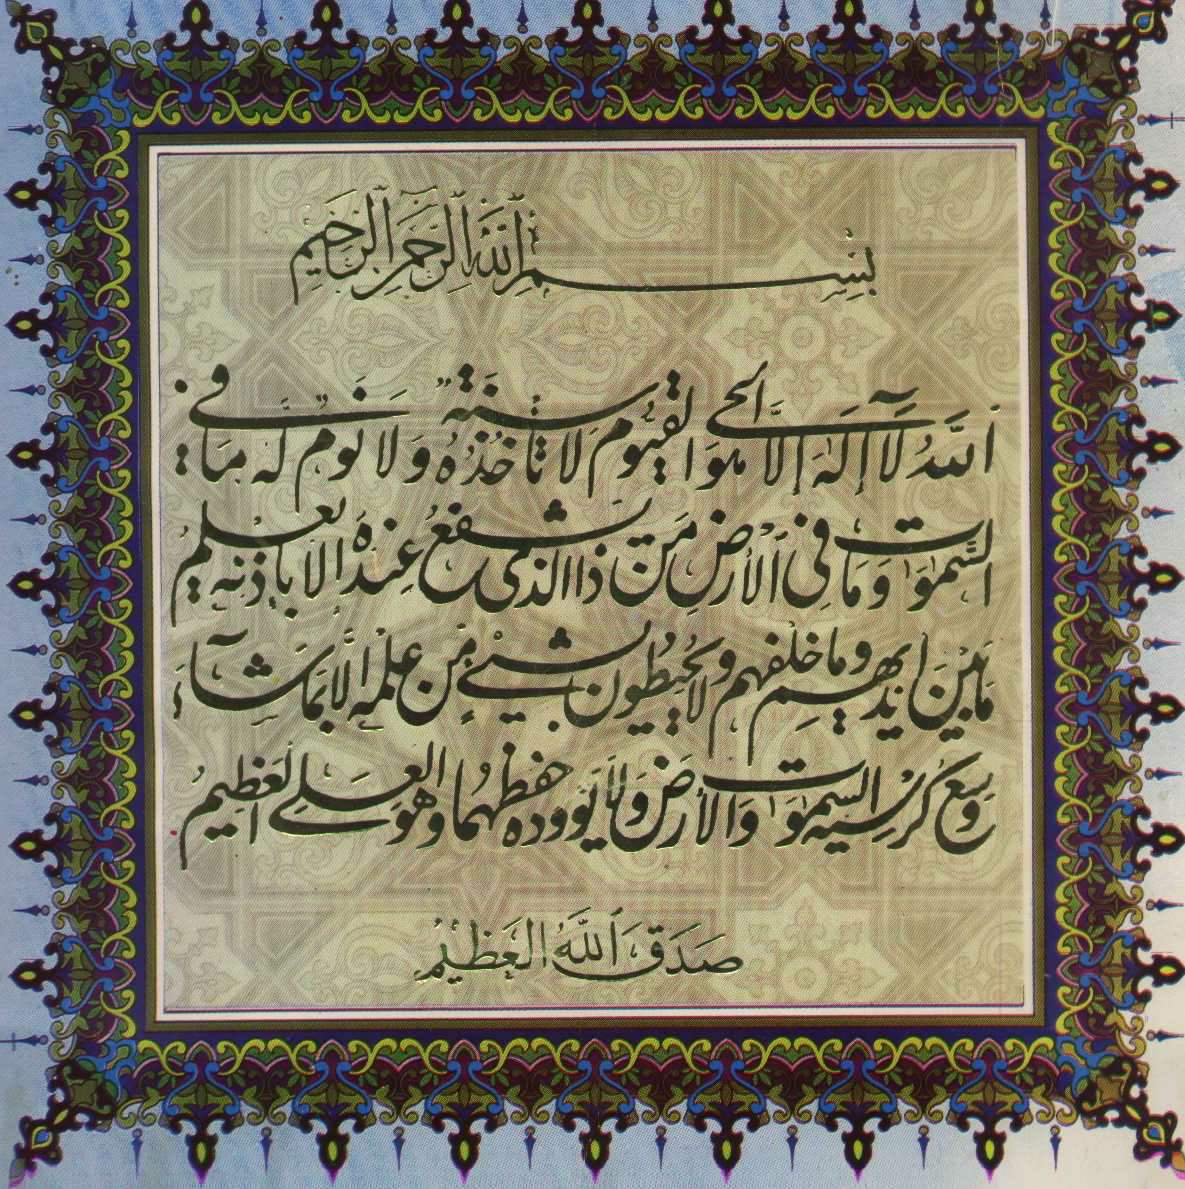 بِسْمِ اللّٰهِ الرَّحْمٰنِ الرَّحِيْمِ
اَللّٰهُ لَآ اِلٰهَ اِلَّا هُوَ الْحَيُّ الْقَيُّوْمُ لَا تَأْخُذُهُ سِنَةٌ وَلَا نَوْمٌ لَهُ مَا فِي
السَّمٰوٰتِ وَمَا فِي الْأَرْضِ مَنْ ذَا الَّذِي يَشْفَعُ عِنْدَهُ إِلَّا بِإِذْنِهِ يَعْلَمُ
مَا بَيْنَ اَيْدِيهِمْ وَمَا خَلْفَهُمْ وَلَا يُحِيْطُونَ بِشَيْءٍ مِنْ عِلْمِهِ اِلَّا بِمَا شَآءَ
وَسِعَ كُرْسِيُّهُ السَّمٰوٰتِ وَالْأَرْضَ وَلَا يَؤُودُهُ حِفْظُهُمَا وَهُوَ الْعَلِيُّ الْعَظِيمُ
صَدَقَ اللّٰهُ الْعَظِيْمُ